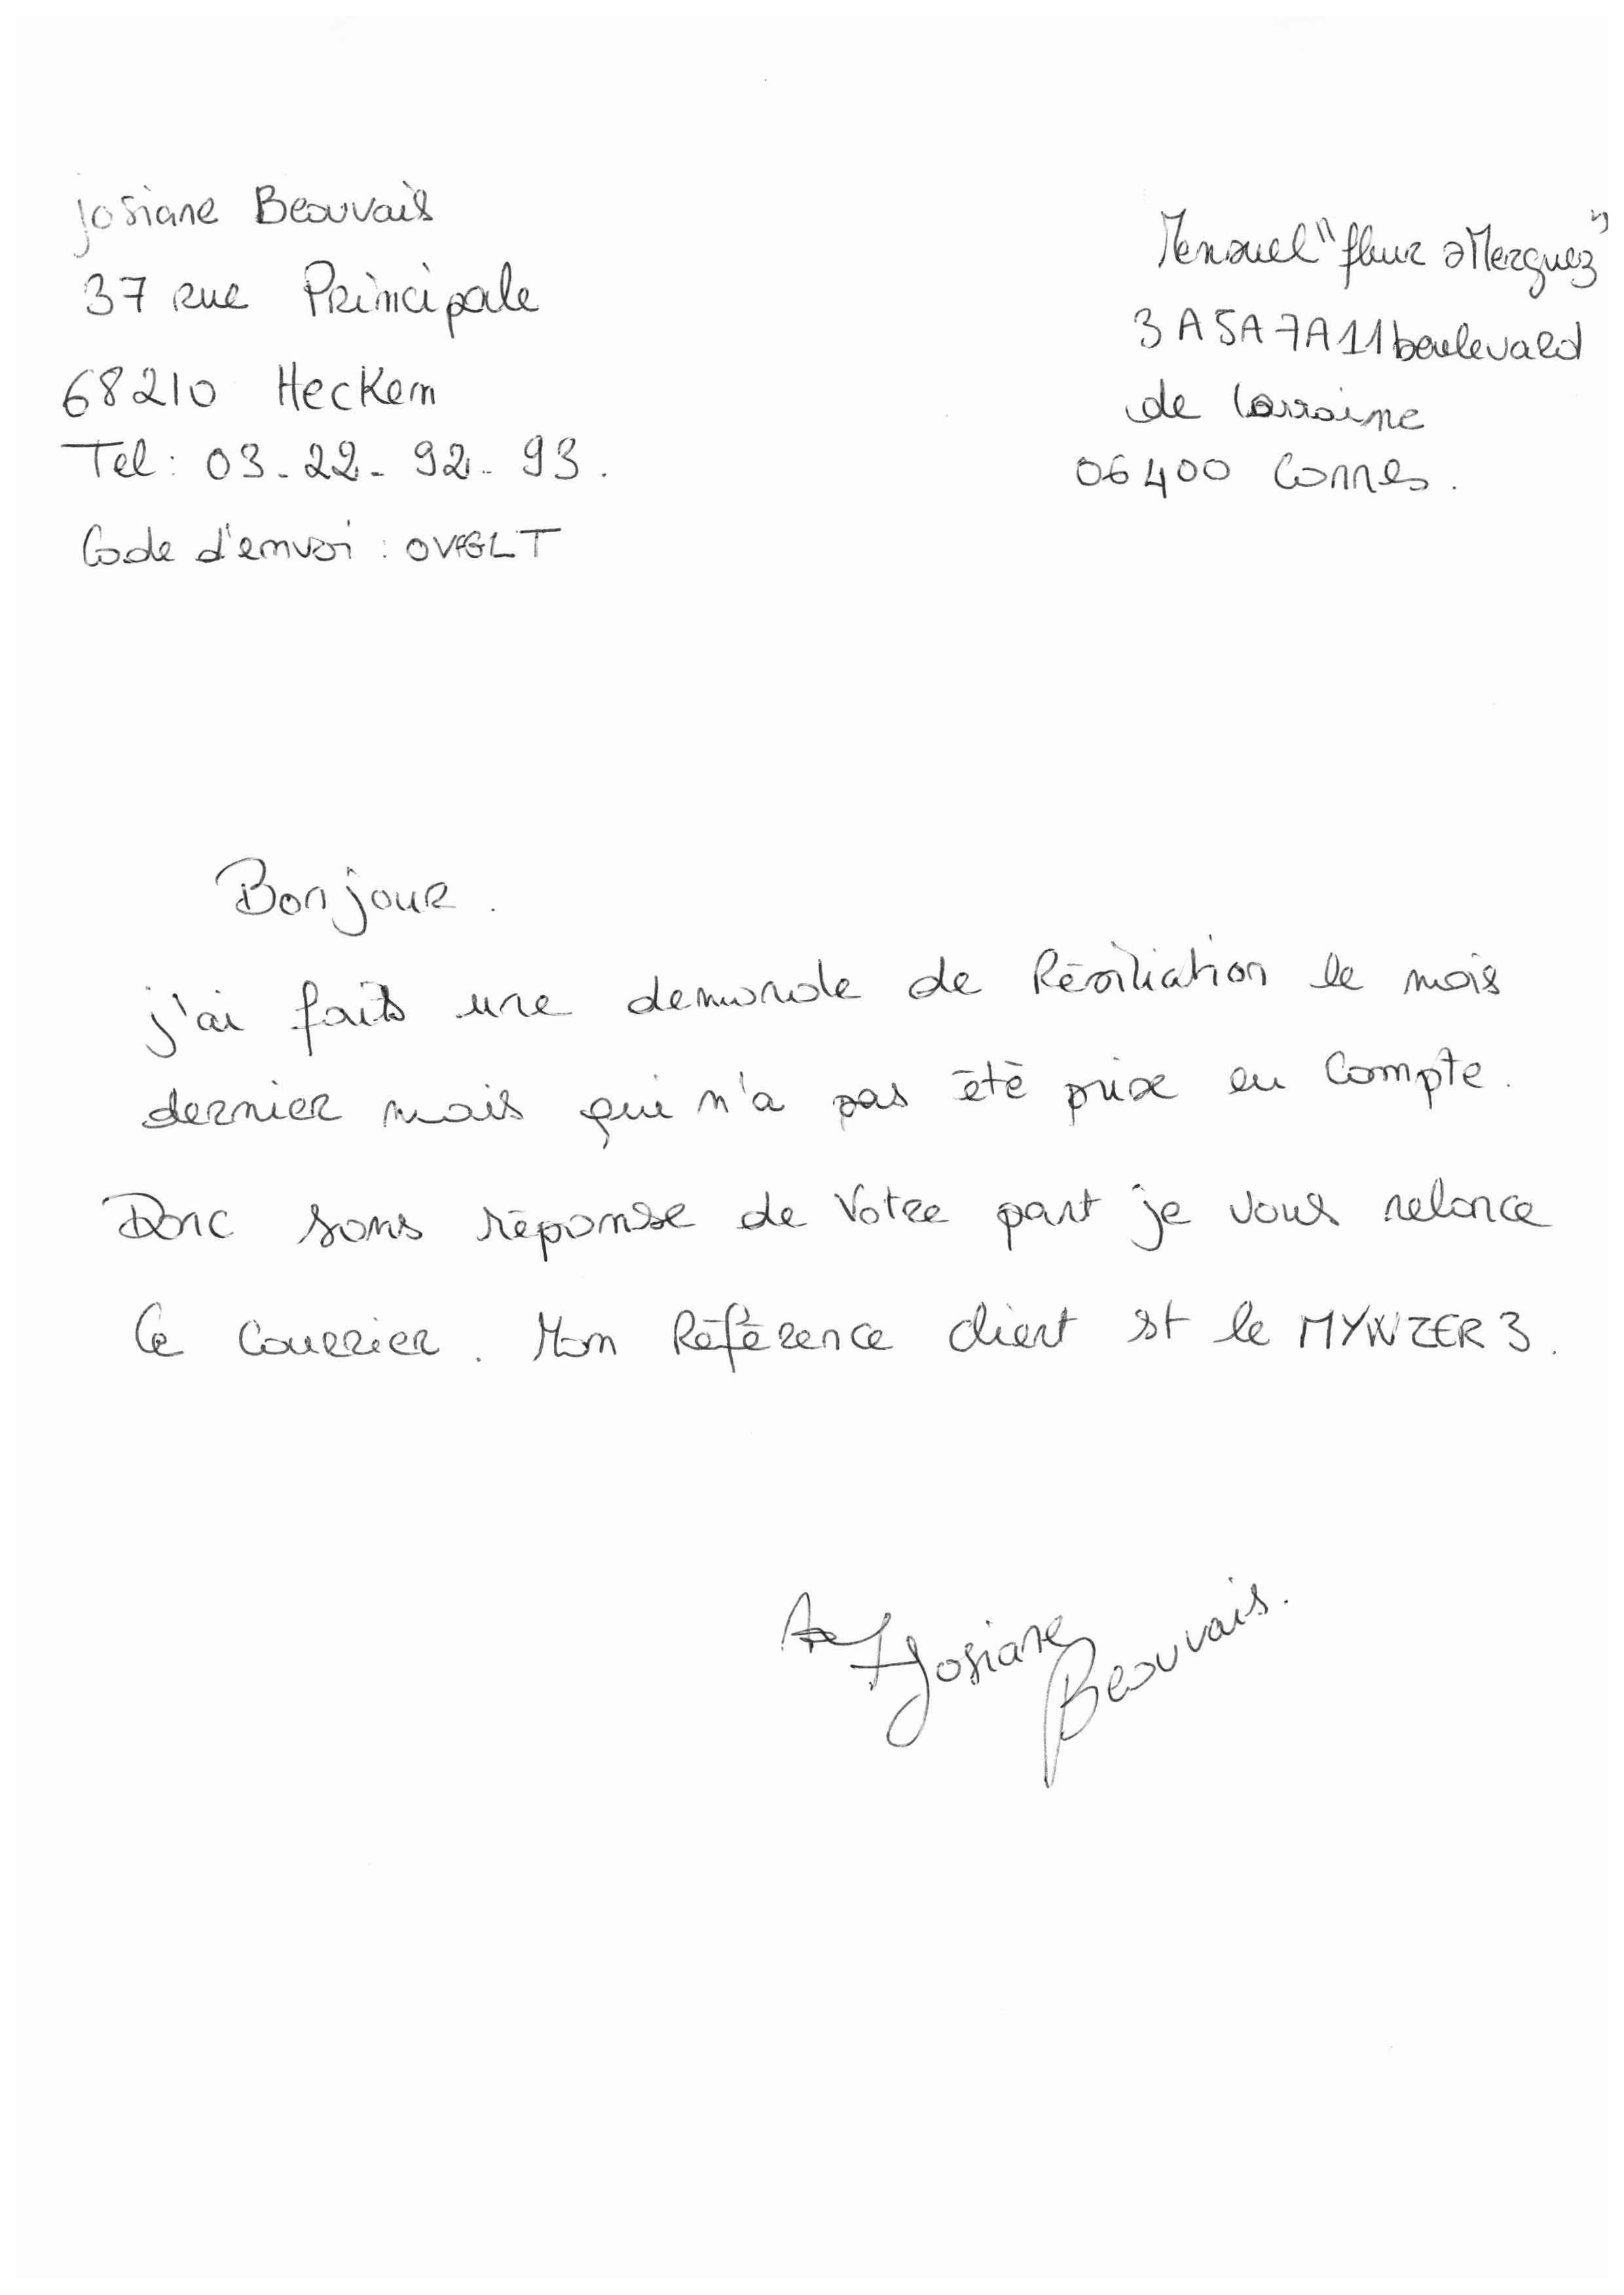 josiane Beauvais
37 rue Principale
68210 Heckem
Tel : 03-22-92-93.
Code d'envoi : OVGLT
Mensuel "fleur Merguez"
3A5A7A11 boulevard
de lorraine
06400 Cannes.
Bonjour.
j'ai faits une demande de Résiliation le mois
dernier mais qui n'a pas été prise en Compte.
Donc sans réponse de Votre part je vous relance
Ce Courrier. Mon Référence client est le MYWZER3.
Josiane
Beauvais.